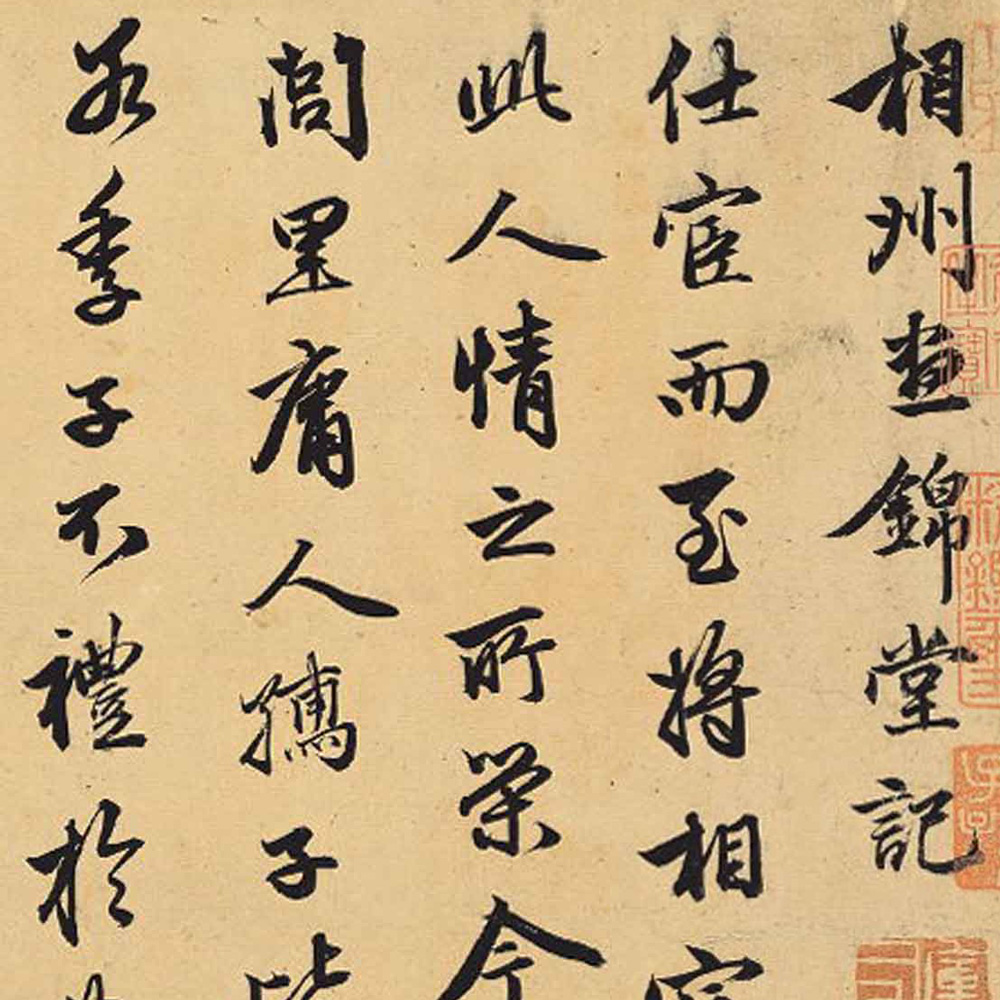 相州晝錦堂記
仕宦而至將相
此人情之所榮今
閭里庸人孺子
若季子不禮於